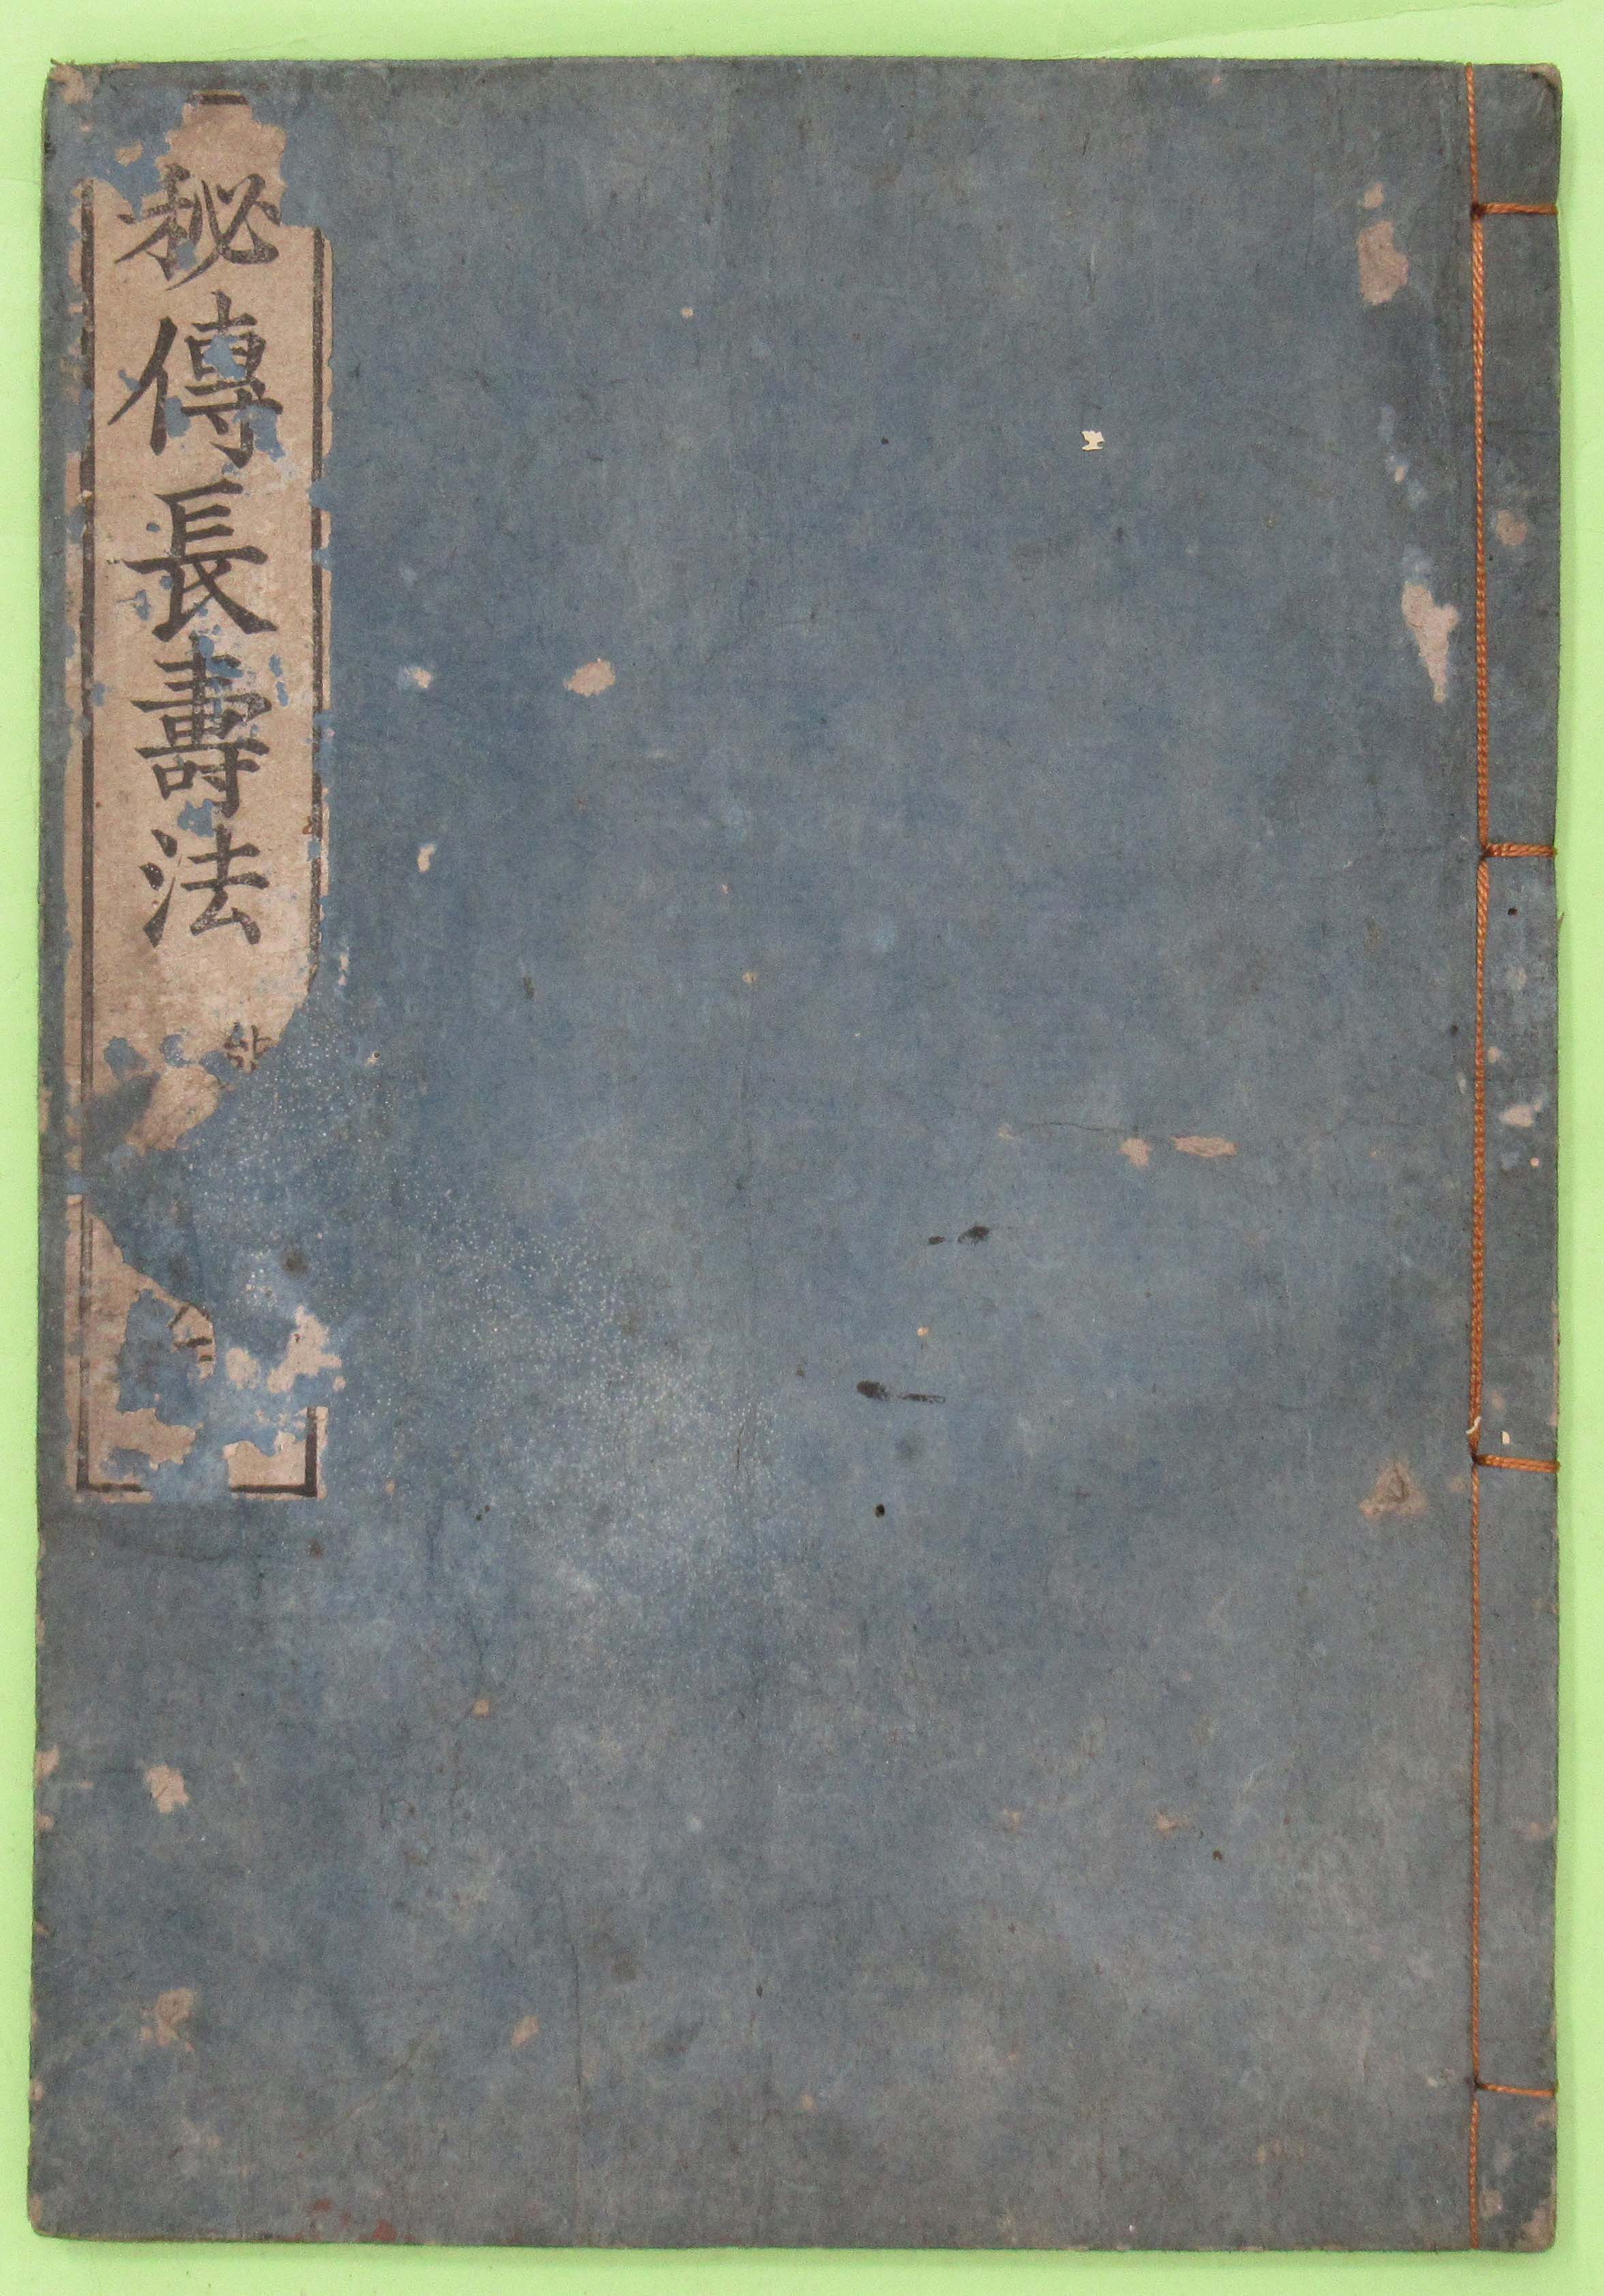 秘傳長壽法